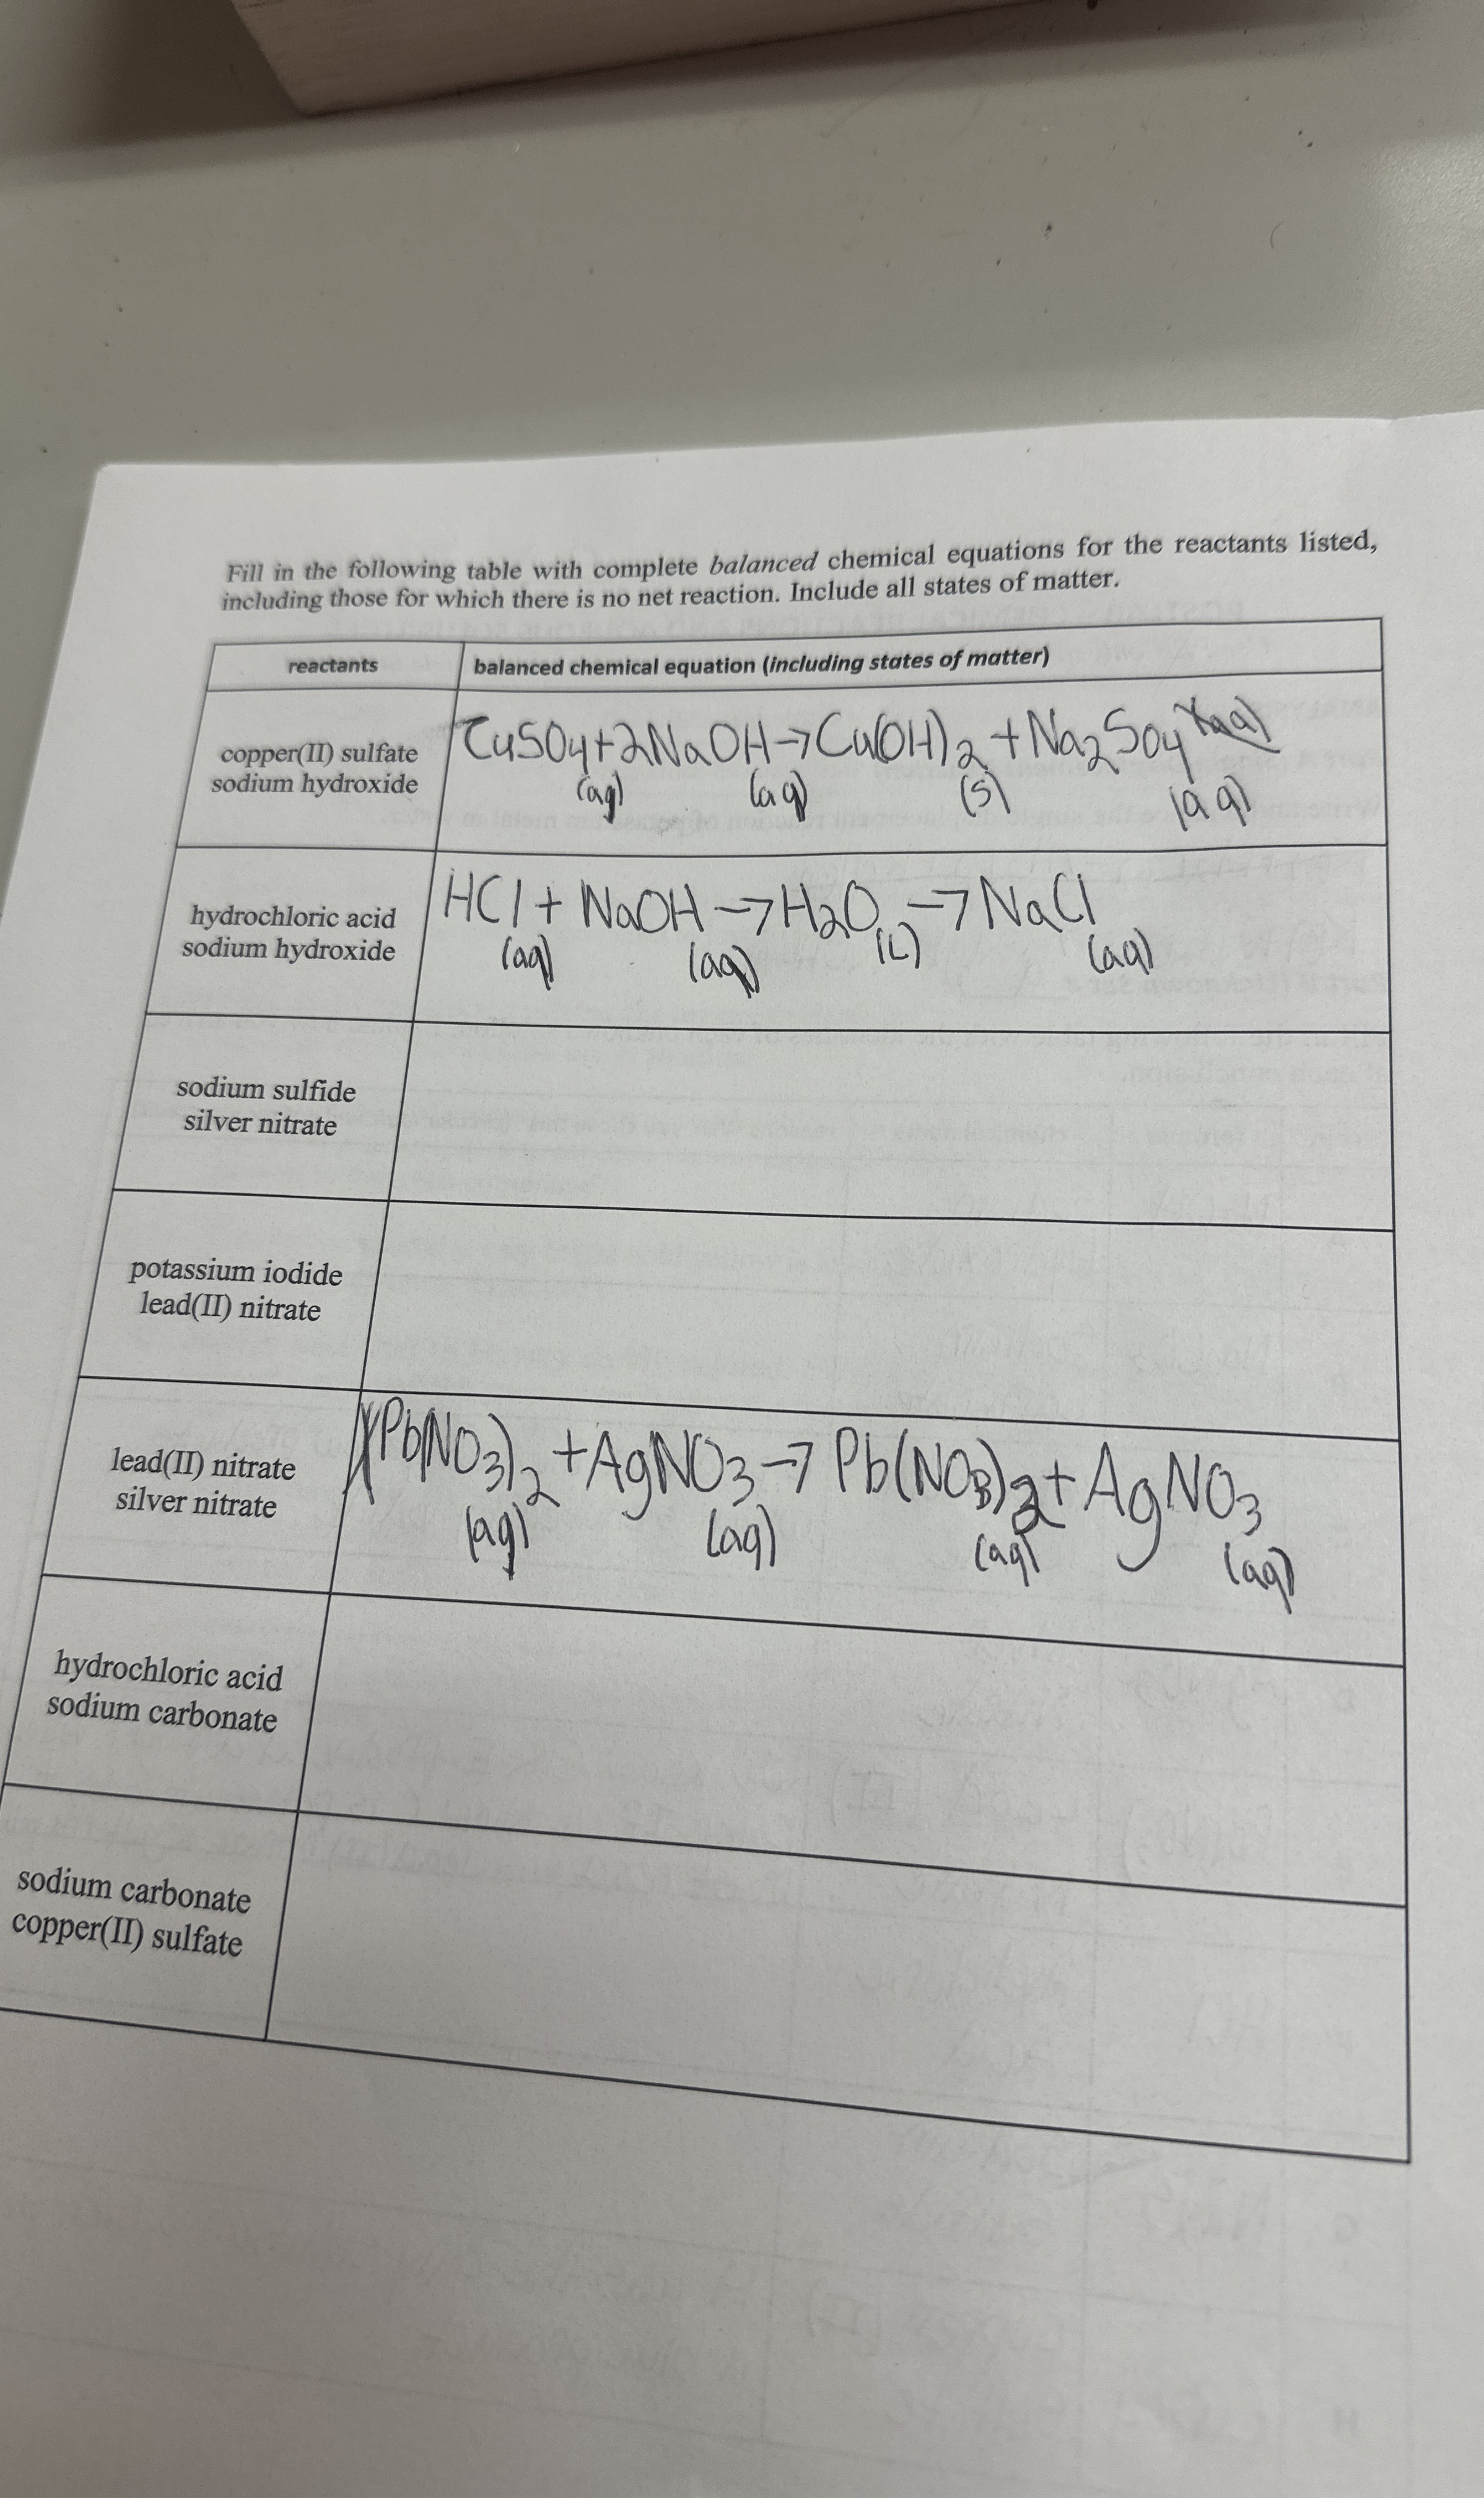 Fill in the following table with complete balanced chemical equations for the reactants listed,
including those for which there is no net reaction. Include all states of matter.
reactants
balanced chemical equation (including states of matter)
copper(II) sulfate
sodium hydroxide
CuSO4+2NaOH→Cu(OH)2+Na2SO4
(aq) (aq) (s) (aq)
hydrochloric acid
sodium hydroxide
HCl+NaOH→H2O→NaCl
(aq) (aq) (L) (aq)
sodium sulfide
silver nitrate
potassium iodide
lead(II) nitrate
lead(II) nitrate
silver nitrate
Pb(NO3)2+AgNO3→Pb(NO3)2+AgNO3
(aq) (aq) (aq) (aq)
hydrochloric acid
sodium carbonate
sodium carbonate
copper(II) sulfate